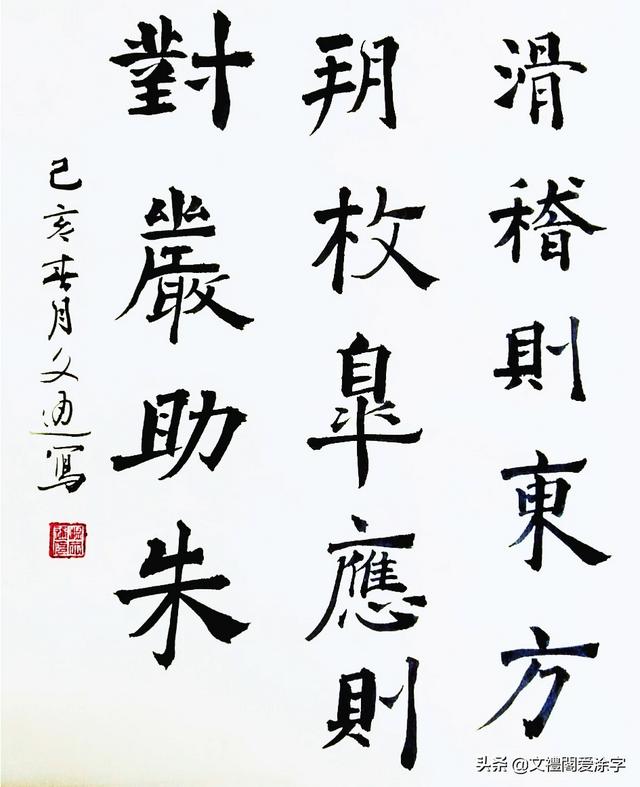 滑稽則東方
朔枚皐應則
對嚴助朱
己亥春月文通寫
头条 @文禮閣爱涂字